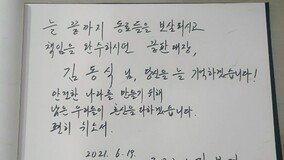 늘 끝까지 동료들을 보살피시고
책임을 완수하시던 꼼한대장,
김동식 님, 당신을 늘 기억하겠습니다!
안전한 나라를 만들기 위해
남은 우리들이 헌신을 다하겠습니다.
편히 쉬소서.
2021. 6. 19.